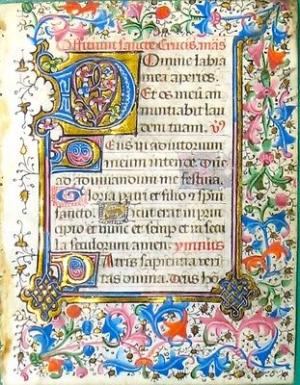 Officium sancte Crucis. mas
Domine labia
mea aperies.
Et os meū an
nuntiabit lau
dem tuam. ꝟ
Deus in adiutorium
meum intende. Dne
ad adiuvandum me festina.
Gloria patri et filio &
sancto. Sicut erat in prin
cipio et nunc et semp et in secu
la seculorum amen. ymnus
Patris sapientia veri
tas divina. Deus ho